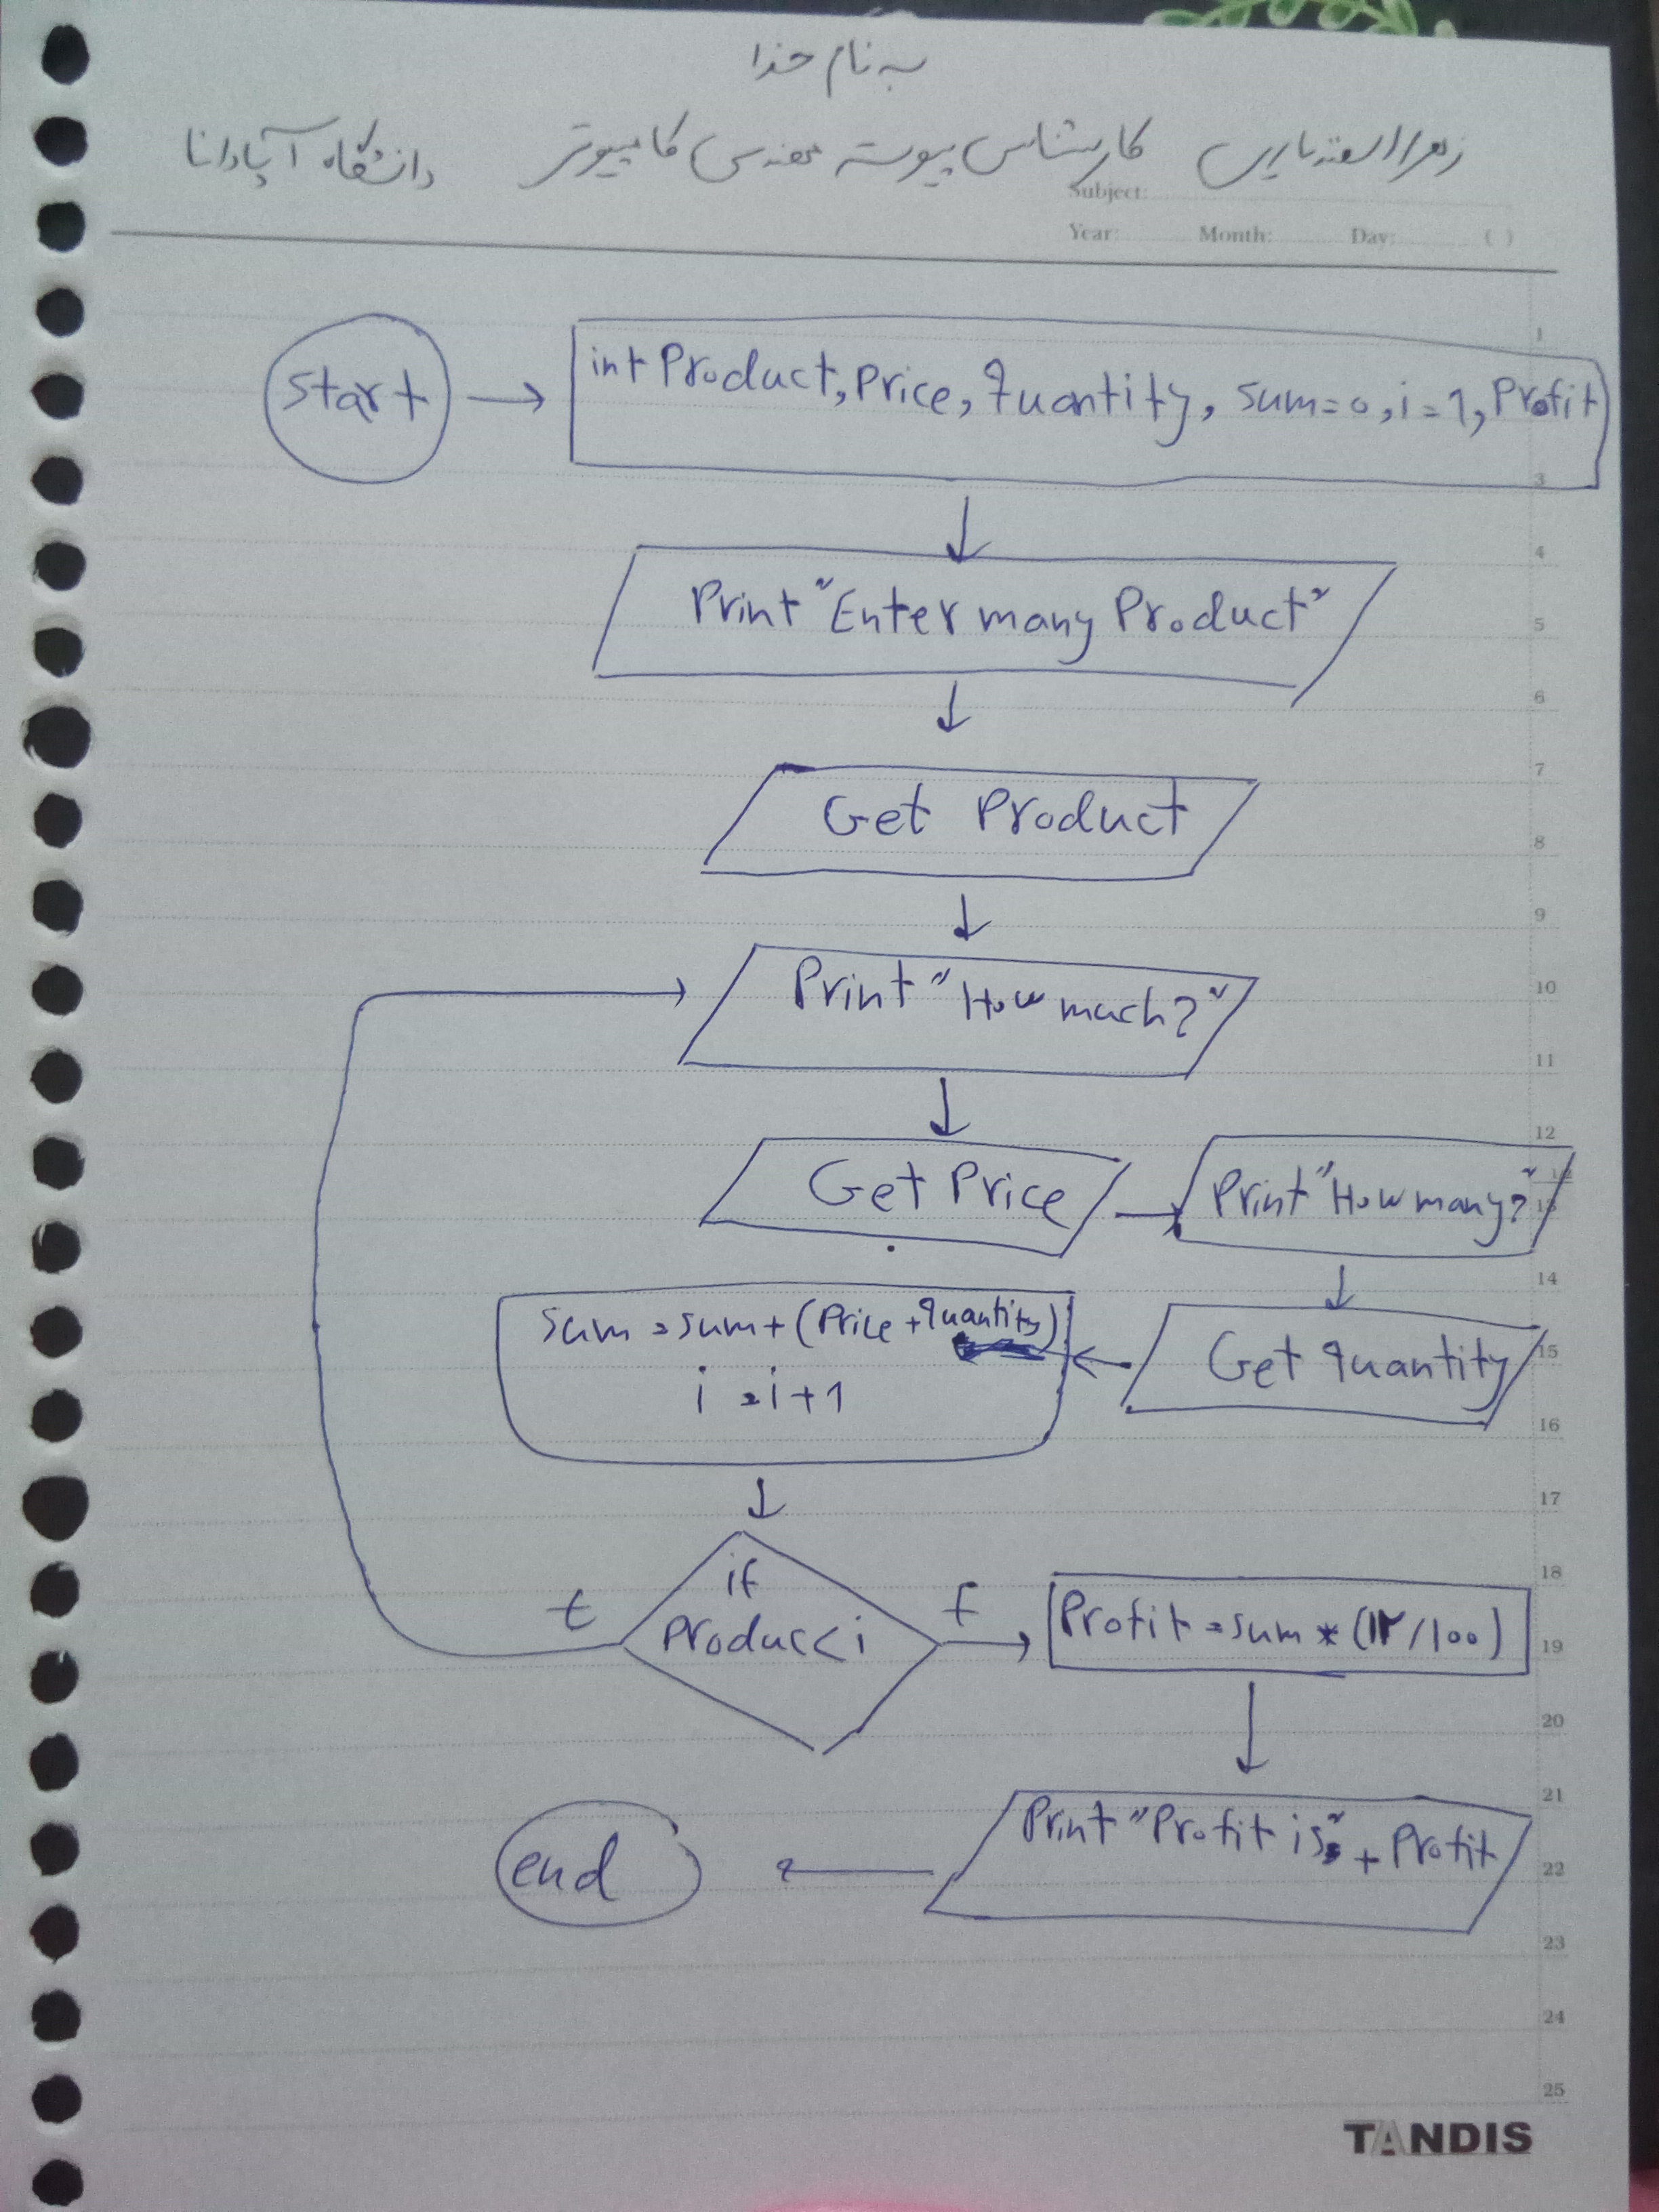 به نام خدا
زهرا کارشناسی پیوسته مهندسی کامپیوتر دانشگاه آپادانا
Subject:
Year: Month: Day: ( )
start
int Product, Price, quantity, sum=0, i=1, Profit
Print "Enter many Product"
Get Product
Print "How much?"
Get Price
Print "How many?"
sum = sum + (Price + quantity)
i = i + 1
Get quantity
if
Produc<i
t
f
Profit = sum * (۱۲/100)
Print "Profit is" + Profit
end
1
3
4
5
6
7
8
9
10
11
12
13
14
15
16
17
18
19
20
21
22
23
24
25
TANDIS